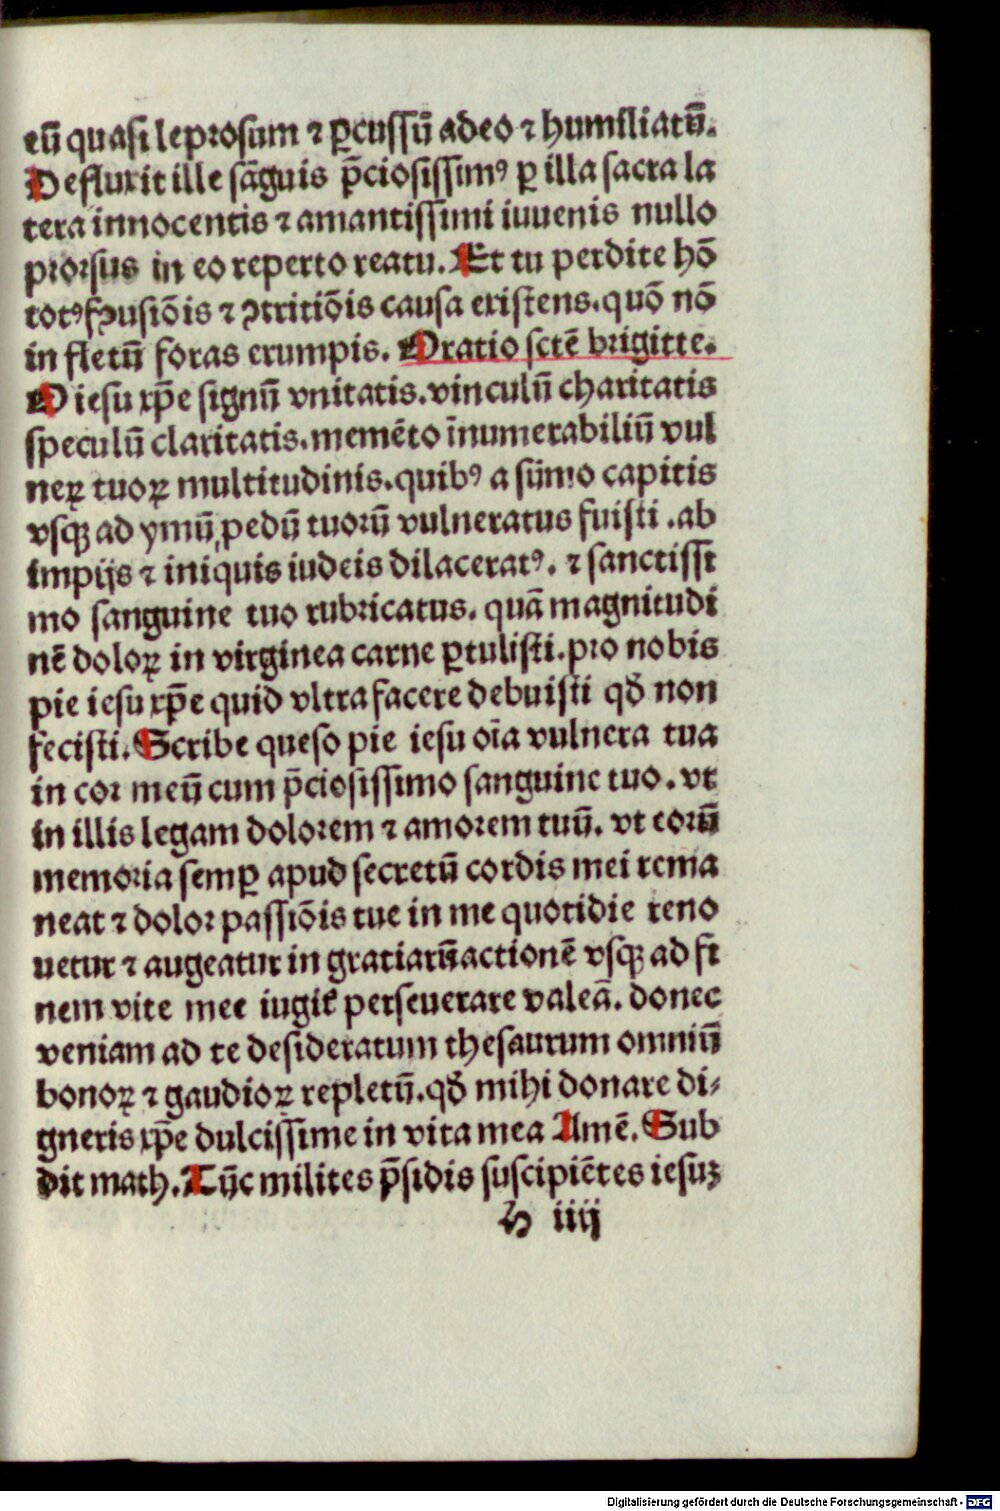 eū quasi leprosum ⁊ ꝑcussū a deo ⁊ humiliatū.
Defluxit ille sāguis p̄ciosissimꝰ ꝑ illa sacra la
tera innocentis ⁊ amantissimi iuuenis nullo
prorsus in eo reperto reatu. Et tu perdite hō
totꝰ ꝯfusiōis ⁊ ꝯtritiōis causa existens. quō nō
in fletū foras erumpis. Oratio sctē brigitte.
O iesu xp̄e signū vnitatis. vinculū charitatis
speculū claritatis. memēto īnumerabiliū vul
neꝝ tuoꝝ multitudinis. quibꝰ a sūmo capitis
vsqꝫ ad ymū pedū tuorū vulneratus fuisti. ab
impijs ⁊ iniquis iudeis dilaceratꝰ. ⁊ sanctissi
mo sanguine tuo rubricatus. quā magnitudi
nē doloꝝ in virginea carne ꝑtulisti. pro nobis
pie iesu xp̄e quid vltra facere debuisti qđ non
fecisti. Scribe queso pie iesu oīa vulnera tua
in cor meū cum p̄ciosissimo sanguine tuo. vt
in illis legam dolorem ⁊ amorem tuū. vt eorū
memoria semꝑ apud secretū cordis mei rema
neat ⁊ dolor passiōis tue in me quotidie reno
uetur ⁊ augeatur in gratiarū actionē vsqꝫ ad fi
nem vite mee iugit᷑ perseuerare valeā. donec
veniam ad te desideratum thesaurum omniū
bonoꝝ ⁊ gaudioꝝ repletū. qđ mihi donare di-
gneris xp̄e dulcissime in vita mea Amē. Sub
dit math. Tūc milites p̄sidis suscipiētes iesuꝫ
h iiij
Digitalisierung gefördert durch die Deutsche Forschungsgemeinschaft - DFG